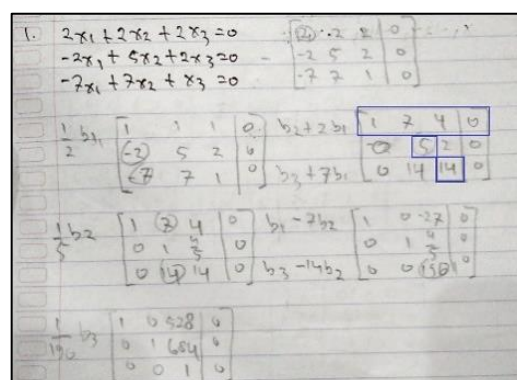 1. 2x1 + 2x2 + 2x3 = 0
-2x1 + 5x2 + 2x3 = 0
-7x1 + 7x2 + x3 = 0
2 2 2 0
-2 5 2 0
-7 7 1 0
1/2 b1
1 1 1 0
-2 5 2 0
-7 7 1 0
b2+2b1
b3+7b1
1 7 4 0
0 5 2 0
0 14 14 0
1/5 b2
1 7 4 0
0 1 0
0 14 14 0
b1-7b2
b3-14b2
1 0 -27 0
0 1 0
0 0 0
b3
1 0 528 0
0 1 684 0
0 0 1 0